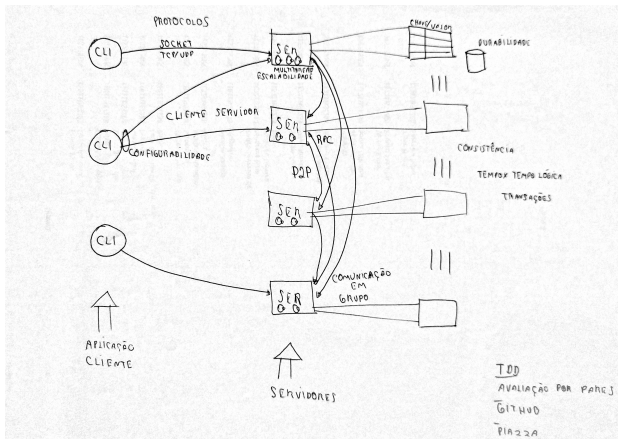 PROTOCOLOS
CLI
SOCKET
TCP/UDP
SER
MULTITHREAD
ESCALABILIDADE
CHAVE/VALOR
DURABILIDADE
CLIENTE SERVIDOR
SER
RPC
CLI
CONFIGURABILIDADE
CONSISTÊNCIA
P2P
TEMPO X TEMPO LÓGICA
TRANSAÇÕES
SER
CLI
COMUNICAÇÃO
EM
GRUPO
SER
APLICAÇÃO
CLIENTE
SERVIDORES
TDD
AVALIAÇÃO POR PARES
GITHUB
PIAZZA